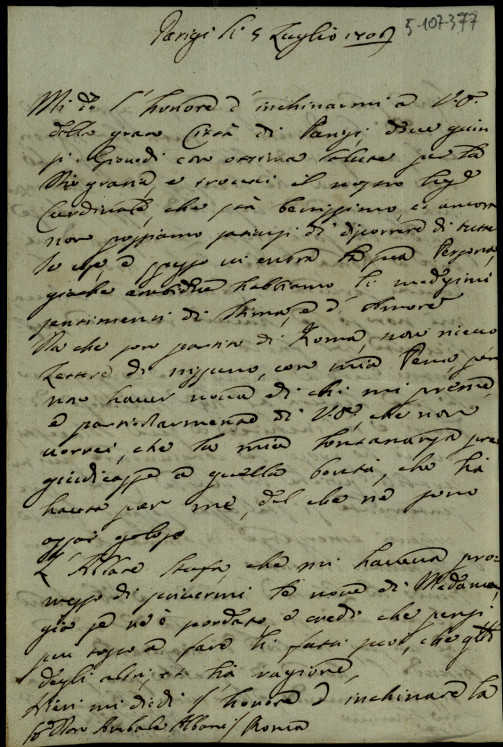 5-107-377
Parigi li 5 Luglio 1706
Mi dò l'honore d'inchinarmi a V.S.
della gran Città di Parigi, dove giun
si Giovedì con ottima salute per la
Dio grazia e trovai il nostro
Cardinale, che stà benissimo, et ancora
non possiamo satiarsi di discorrere di tutte
le cose e spesso vi entra la sua Persona,
giache ambidue habbiamo li medesimi
sentimenti di stima, e d'Amore
Da che son partito di Roma, non ricevo
lettere di nissuno, con mia Pena per
non haver nova di chi mi preme,
e particolarmente di V.S. che non
vorrei, che la mia lontananza pre
giudicasse a quella bontà, che hà
havuta per me, del che ne sono
assai geloso
L'Abate, che mi haveva pro-
messo di scrivermi le nove di Madama
già se ne è scordato, e credo che pensi
più tosto a fare li fatti suoi, che
degli altri, et hà ragione,
Hieri mi diedi l'honore d'inchinare la
Annibale Albani / Roma